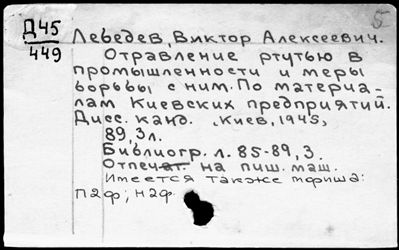 5
Д45
449
Лебедев, Виктор Алексеевич.
Отравление ртутью в
промышленности и меры
борьбы с ним. По материа-
лам Киевских предприятий.
Дисс. канд. Киев, 1945,
89, 3 л.
Библиогр. л. 85-89, 3.
Отпечат. на пиш. маш.
Имеется также мфиша:
П2ф; Н2ф